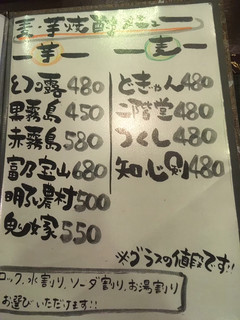 麦・芋焼酎メニュー
芋
幻の露 480
黒霧島 450
赤霧島 580
富乃宝山 680
明るい農村 500
鬼嫁 550
麦
どぎゃん 480
二階堂 480
つくし 480
知心剣 480
※グラスの値段です!!
ロック、水割り、ソーダ割り、お湯割り
お選びいただけます!!